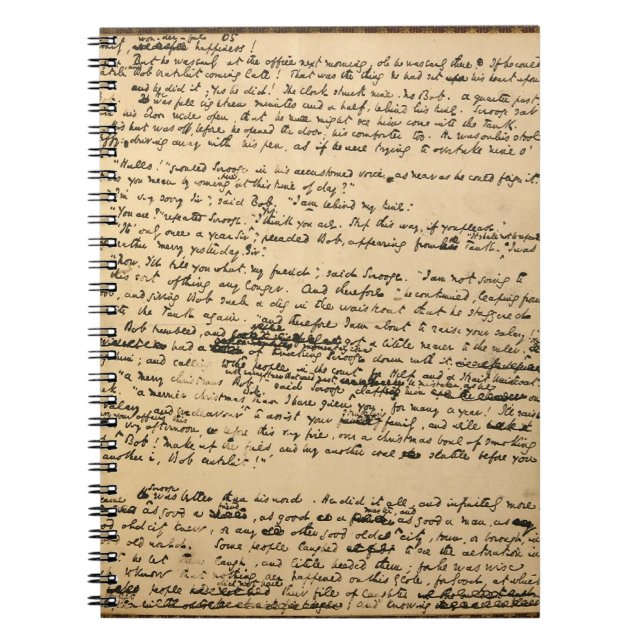 won-der-ful 65
happiness!
But he was early at the office next morning. oh he was early there. If he could
Bob Cratchit coming late! That was the thing he had set his heart upon
and he did it; yes he did! The clock struck nine. No Bob. A quarter past.
He was full eighteen minutes and a half, behind his time. Scrooge sat
his door wide open, that he might see him come into the Tank.
His hat was off, before he opened the door; his comforter too. He was on his stool
driving away with his pen, as if he were trying to overtake nine o'
"Hallo!" growled Scrooge in his accustomed voice, as near as he could feign it.
you mean by coming here at this time of day?"
"I'm very sorry Sir", said Bob. "I am behind my time."
"You are?" repeated Scrooge. "Yes. I think you are. Step this way, if you please."
"It's only once a year Sir", pleaded Bob, appearing from the Tank. "It shall not be repeated. I was
rather merry, yesterday, Sir."
"Now, I'll tell you what, my friend", said Scrooge. "I am not going to
this sort of thing any longer. And therefore" he continued, leaping from
and giving Bob such a dig in the waistcoat that he staggered
into the Tank again. "and therefore I am about to raise your salary!"
Bob trembled, and got a little nearer to the ruler. He
had a momentary idea of knocking Scrooge down with it
and calling to the people in the court for Help and a Strait Waistcoat.
with an earnestness that could not be mistaken, as he
"a merry Christmas Bob!" said Scrooge clapped him on
"a merrier Christmas Bob than I have given you for many a year! I'll raise
salary and endeavour to assist your struggling family, and we'll
very afternoon, before this very fire, over a christmas bowl of smoking
Bob! Make up the fires, and buy another coal scuttle before you
another i, Bob Cratchit!"
Scrooge was better than his word. He did it all, and infinitely more
as good a friend, as good a master, and as good a man, as
old city knew, or any other good old city, town, or borough, in
old world. Some people laughed to see the alteration in
he let them laugh, and little heeded them; for he was wise
to know that nothing ever happened on this Globe, for good, at which
people did not have their fill of laughter
and knowing